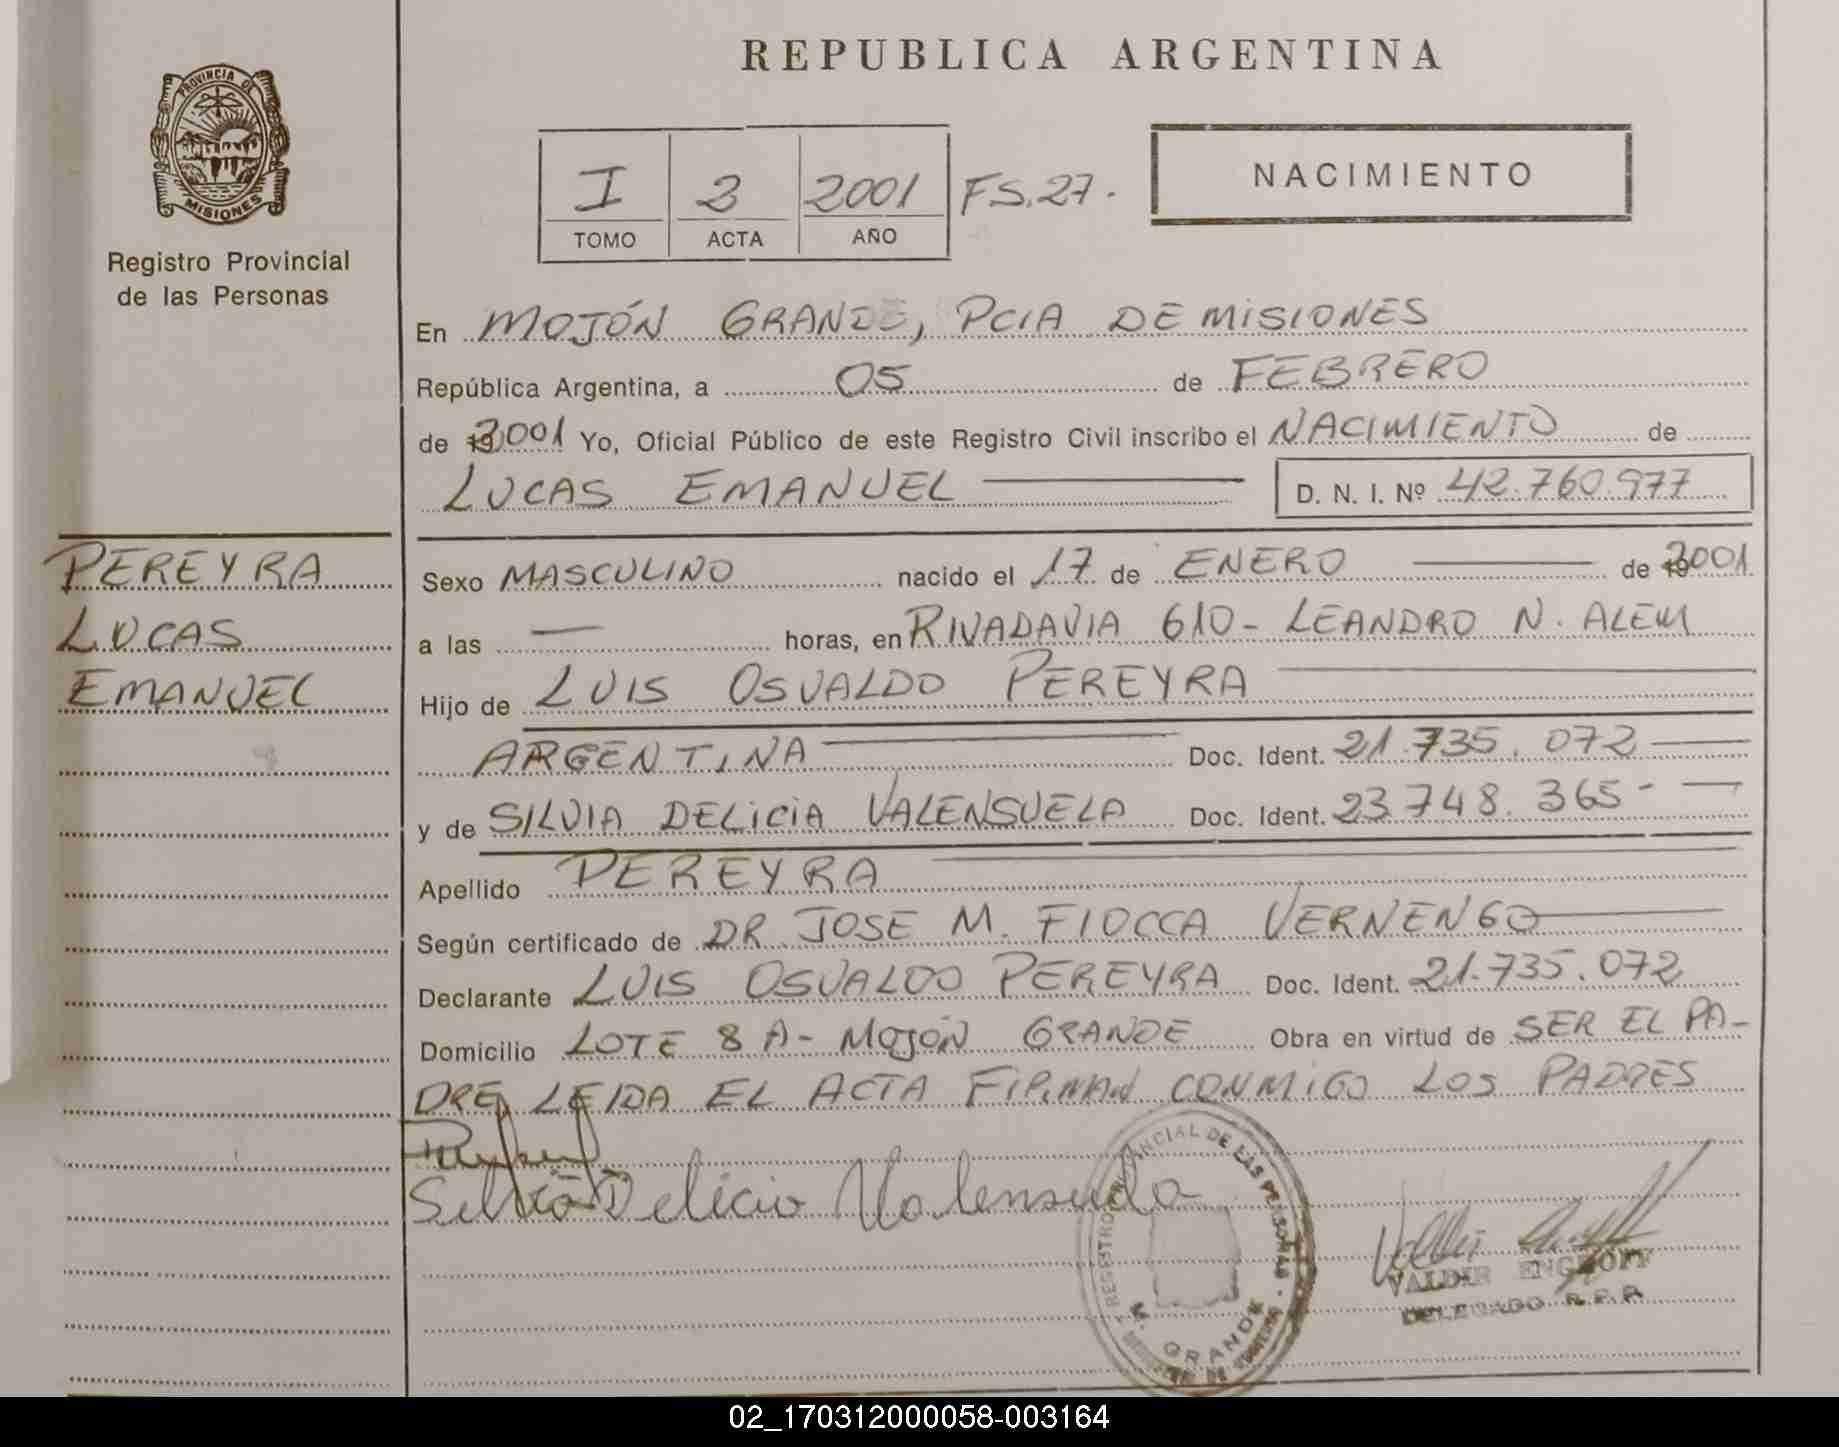 REPUBLICA ARGENTINA
PROVINCIA DE
MISIONES
Registro Provincial
de las Personas
I 2 2001 FS.27.
TOMO ACTA AÑO
NACIMIENTO
En MOJÓN GRANDE, PCIA DE MISIONES
República Argentina, a 05 de FEBRERO
de 2001 Yo, Oficial Público de este Registro Civil inscribo el NACIMIENTO de
LUCAS EMANUEL D. N. I. Nº 42.760.977
PEREYRA
LUCAS
EMANUEL
Sexo MASCULINO nacido el 17 de ENERO de 2001
a las — horas, en RIVADAVIA 610 - LEANDRO N. ALEM
Hijo de LUIS OSVALDO PEREYRA
ARGENTINA Doc. Ident. 21.735.072
y de SILVIA DELICIA VALENSUELA Doc. Ident. 23.748.365-
Apellido PEREYRA
Según certificado de DR JOSE M. FIOCCA VERNENGO
Declarante LUIS OSVALDO PEREYRA Doc. Ident. 21.735.072
Domicilio LOTE 8 A - MOJÓN GRANDE Obra en virtud de SER EL PA-
DRE, LEIDA EL ACTA FIRMAN CONMIGO LOS PADRES
Silvia Delicia Valensuela
REGISTRO PROVINCIAL DE LAS PERSONAS
M. GRANDE
VALDIR ENGROFF
DELEGADO R.P.P.
02_170312000058-003164